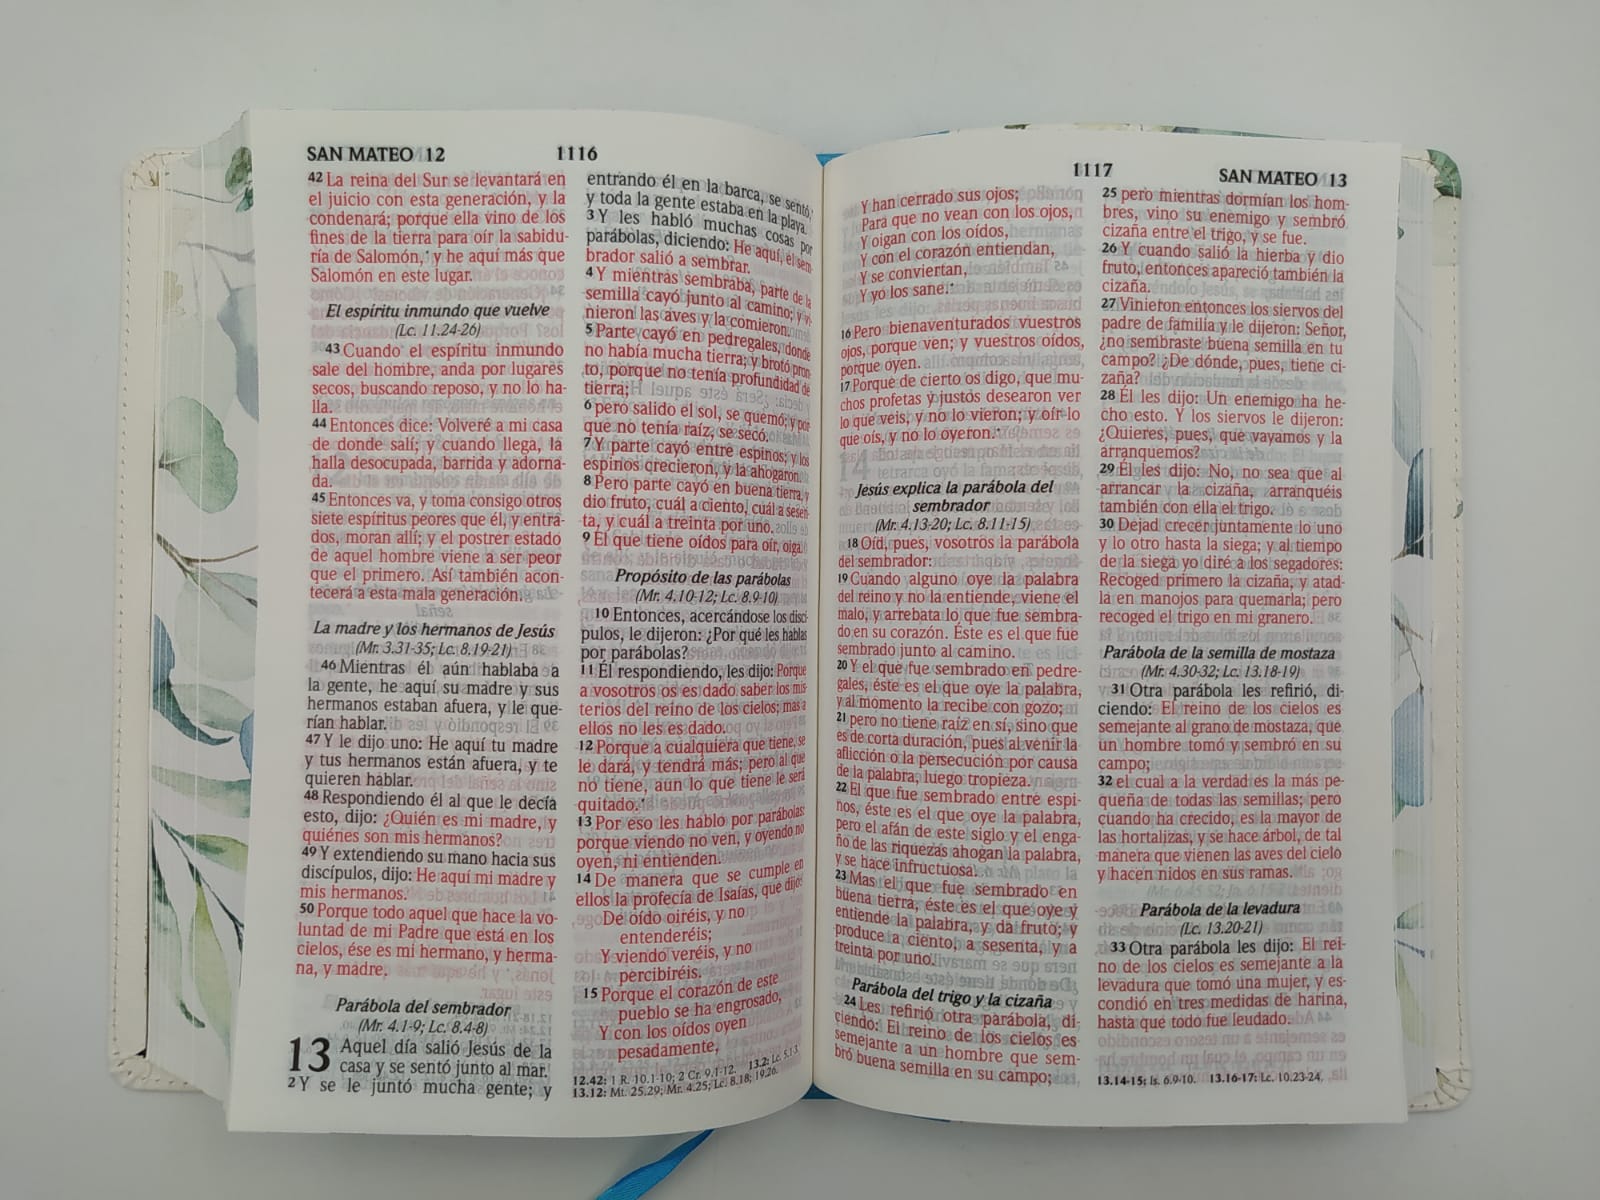 SAN MATEO 12
1116
42 La reina del Sur se levantará en
el juicio con esta generación, y la
condenará; porque ella vino de los
fines de la tierra para oír la sabidu-
ría de Salomón,* y he aquí más que
Salomón en este lugar.
El espíritu inmundo que vuelve
(Lc. 11.24-26)
43 Cuando el espíritu inmundo
sale del hombre, anda por lugares
secos, buscando reposo, y no lo ha-
lla.
44 Entonces dice: Volveré a mi casa
de donde salí; y cuando llega, la
halla desocupada, barrida y adorna-
da.
45 Entonces va, y toma consigo otros
siete espíritus peores que él, y entra-
dos, moran allí; y el postrer estado
de aquel hombre viene a ser peor
que el primero. Así también acon-
tecerá a esta mala generación.
La madre y los hermanos de Jesús
(Mr. 3.31-35; Lc. 8.19-21)
46 Mientras él aún hablaba a
la gente, he aquí su madre y sus
hermanos estaban afuera, y le que-
rían hablar.
47 Y le dijo uno: He aquí tu madre
y tus hermanos están afuera, y te
quieren hablar.
48 Respondiendo él al que le decía
esto, dijo: ¿Quién es mi madre, y
quiénes son mis hermanos?
49 Y extendiendo su mano hacia sus
discípulos, dijo: He aquí mi madre y
mis hermanos.
50 Porque todo aquel que hace la vo-
luntad de mi Padre que está en los
cielos, ése es mi hermano, y herma-
na, y madre.
Parábola del sembrador
(Mr. 4.1-9; Lc. 8.4-8)
13 Aquel día salió Jesús de la
casa y se sentó junto al mar.
2 Y se le juntó mucha gente; y
entrando él en la barca, se sentó,*
y toda la gente estaba en la playa.
3 Y les habló muchas cosas por
parábolas, diciendo: He aquí, el sem-
brador salió a sembrar.
4 Y mientras sembraba, parte de la
semilla cayó junto al camino; y vi-
nieron las aves y la comieron.
5 Parte cayó en pedregales, donde
no había mucha tierra; y brotó pron-
to, porque no tenía profundidad de
tierra;
6 pero salido el sol, se quemó; y por-
que no tenía raíz, se secó.
7 Y parte cayó entre espinos; y los
espinos crecieron, y la ahogaron.
8 Pero parte cayó en buena tierra, y
dio fruto, cuál a ciento, cuál a sesen-
ta, y cuál a treinta por uno.
9 El que tiene oídos para oír, oiga.
Propósito de las parábolas
(Mr. 4.10-12; Lc. 8.9-10)
10 Entonces, acercándose los discí-
pulos, le dijeron: ¿Por qué les hablas
por parábolas?
11 Él respondiendo, les dijo: Porque
a vosotros os es dado saber los mis-
terios del reino de los cielos; mas a
ellos no les es dado.
12 Porque a cualquiera que tiene, se
le dará, y tendrá más; pero al que
no tiene, aun lo que tiene le será
quitado.*
13 Por eso les hablo por parábolas:
porque viendo no ven, y oyendo no
oyen, ni entienden.
14 De manera que se cumple en
ellos la profecía de Isaías, que dijo:
De oído oiréis, y no
entenderéis;
Y viendo veréis, y no
percibiréis.
15 Porque el corazón de este
pueblo se ha engrosado,
Y con los oídos oyen
pesadamente,
12.42: 1 R. 10.1-10; 2 Cr. 9.1-12. 13.2: Lc. 5.1-3.
13.12: Mt. 25.29; Mr. 4.25; Lc. 8.18; 19.26.
1117
SAN MATEO 13
Y han cerrado sus ojos;
Para que no vean con los ojos,
Y oigan con los oídos,
Y con el corazón entiendan,
Y se conviertan,
Y yo los sane.*
16 Pero bienaventurados vuestros
ojos, porque ven; y vuestros oídos,
porque oyen.
17 Porque de cierto os digo, que mu-
chos profetas y justos desearon ver
lo que veis, y no lo vieron; y oír lo
que oís, y no lo oyeron.*
Jesús explica la parábola del
sembrador
(Mr. 4.13-20; Lc. 8.11-15)
18 Oíd, pues, vosotros la parábola
del sembrador:
19 Cuando alguno oye la palabra
del reino y no la entiende, viene el
malo, y arrebata lo que fue sembra-
do en su corazón. Éste es el que fue
sembrado junto al camino.
20 Y el que fue sembrado en pedre-
gales, éste es el que oye la palabra,
y al momento la recibe con gozo;
21 pero no tiene raíz en sí, sino que
es de corta duración, pues al venir la
aflicción o la persecución por causa
de la palabra, luego tropieza.
22 El que fue sembrado entre espi-
nos, éste es el que oye la palabra,
pero el afán de este siglo y el enga-
ño de las riquezas ahogan la palabra,
y se hace infructuosa.
23 Mas el que fue sembrado en
buena tierra, éste es el que oye y
entiende la palabra, y da fruto; y
produce a ciento, a sesenta, y a
treinta por uno.
Parábola del trigo y la cizaña
24 Les refirió otra parábola, di-
ciendo: El reino de los cielos es
semejante a un hombre que sem-
bró buena semilla en su campo;
25 pero mientras dormían los hom-
bres, vino su enemigo y sembró
cizaña entre el trigo, y se fue.
26 Y cuando salió la hierba y dio
fruto, entonces apareció también la
cizaña.
27 Vinieron entonces los siervos del
padre de familia y le dijeron: Señor,
¿no sembraste buena semilla en tu
campo? ¿De dónde, pues, tiene ci-
zaña?
28 Él les dijo: Un enemigo ha he-
cho esto. Y los siervos le dijeron:
¿Quieres, pues, que vayamos y la
arranquemos?
29 Él les dijo: No, no sea que al
arrancar la cizaña, arranquéis
también con ella el trigo.
30 Dejad crecer juntamente lo uno
y lo otro hasta la siega; y al tiempo
de la siega yo diré a los segadores:
Recoged primero la cizaña, y atad-
la en manojos para quemarla; pero
recoged el trigo en mi granero.
Parábola de la semilla de mostaza
(Mr. 4.30-32; Lc. 13.18-19)
31 Otra parábola les refirió, di-
ciendo: El reino de los cielos es
semejante al grano de mostaza, que
un hombre tomó y sembró en su
campo;
32 el cual a la verdad es la más pe-
queña de todas las semillas; pero
cuando ha crecido, es la mayor de
las hortalizas, y se hace árbol, de tal
manera que vienen las aves del cielo
y hacen nidos en sus ramas.
Parábola de la levadura
(Lc. 13.20-21)
33 Otra parábola les dijo: El rei-
no de los cielos es semejante a la
levadura que tomó una mujer, y es-
condió en tres medidas de harina,
hasta que todo fue leudado.
13.14-15: Is. 6.9-10. 13.16-17: Lc. 10.23-24.